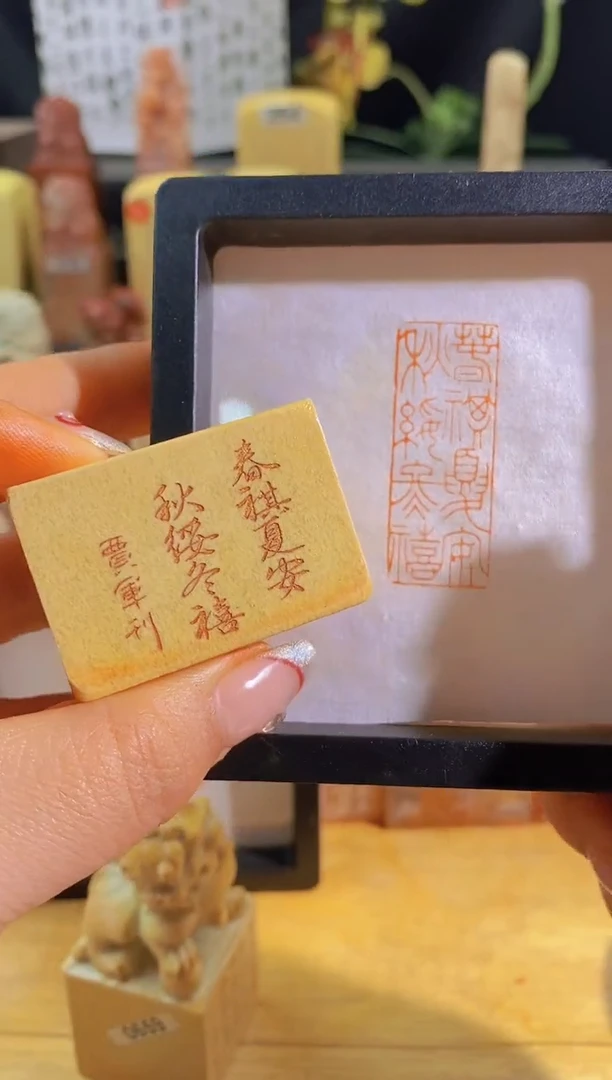 春祺夏安
秋綏冬禧
賈軍刊
春祺夏安
秋綏冬禧
0669